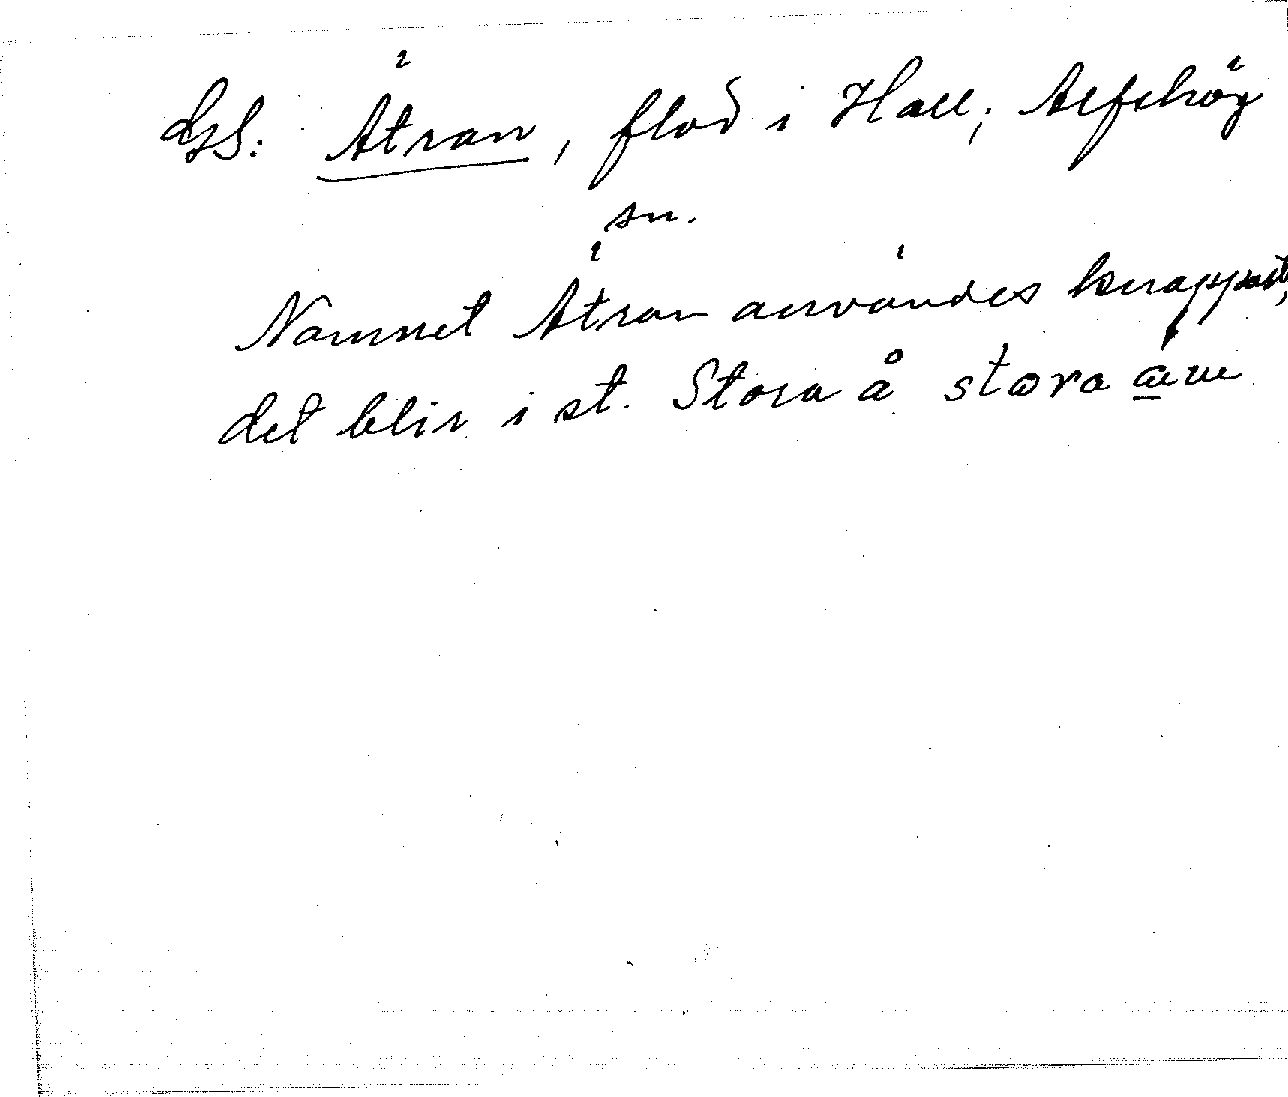 Ätran, flod i Hall; Alfshög
sn.
Namnet Ätran användes knappast,
det blir i st. Stora å stora